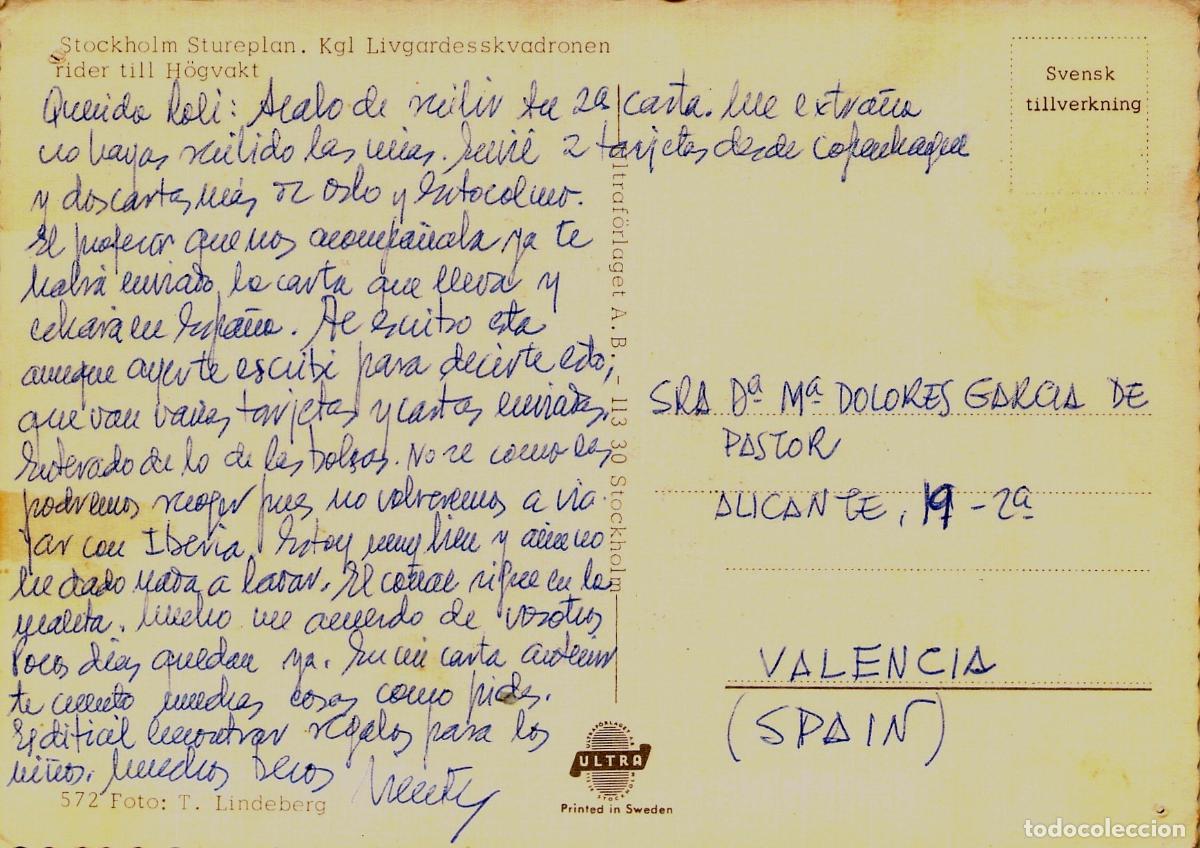 Stockholm Stureplan. Kgl Livgardesskvadronen
rider till Högvakt
Querida Loli: Acabo de recibir tu 2ª carta. Me extraña
no hayas recibido las mías. Envié 2 tarjetas desde Copenhague
y dos cartas más de Oslo y Estocolmo.
El profesor que nos acompañaba ya te
habrá enviado la carta que lleva y
echará en España. Te escribo esta
aunque ayer te escribí para decirte esto,
que van varias tarjetas y cartas enviadas.
Enterado de lo de las bolsas. No se como las
podremos recoger pues no volveremos a via-
jar con Iberia. Estoy muy bien y aún no
he dado nada a lavar. El coñac sigue en la
maleta. Mucho me acuerdo de vosotros
Pocos días quedan ya. En mi carta anterior
te cuento muchas cosas como pides.
Es difícil encontrar regalos para los
niños. Muchos besos Vicente
572 Foto: T. Lindeberg
Ultraförlaget A.B. - 113 30 Stockholm
Svensk
tillverkning
SRA Dª Mª DOLORES GARCIA DE
PASTOR
ALICANTE, 19 - 2ª
VALENCIA
(SPAIN)
ULTRAFÖRLAGET A.B.
ULTRA
STOCKHOLM
Printed in Sweden
todocoleccion